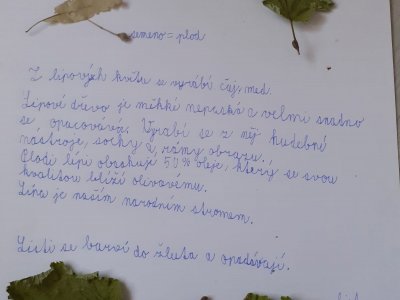 semeno = plod
Z lipových květu se vyrábí čaj, med.
Lipové dřevo je měkké nepraská a velmi snadno
se opacovává. Vyrabí se z něj hudební
nástroje, sochy a rámy obrazu.
Plodi lípi obsahují 50% oleje, který se svou
kvalitou blíží olivovému.
Lípa je našim narodním stromem.
Listi se barví do žluta a opadávají.